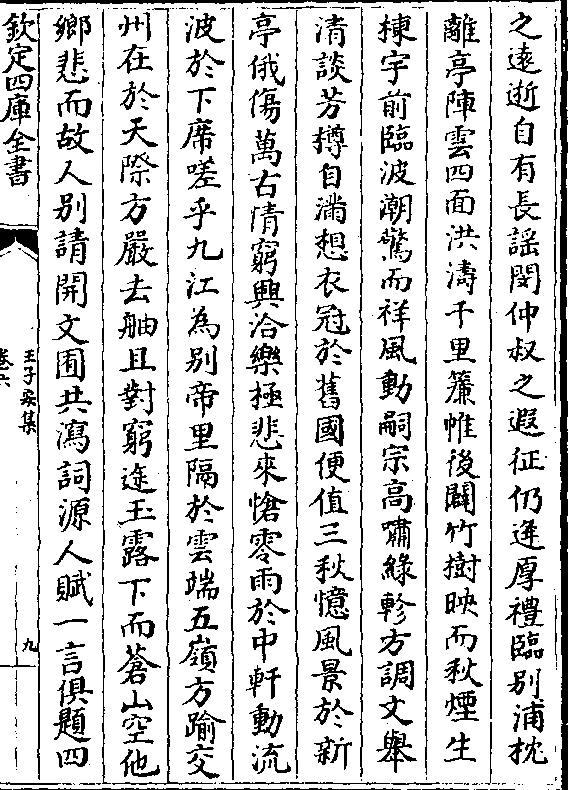 之遠逝自有長謡閔仲叔之遐征仍逢厚禮臨别浦枕
離亭陣雲四面洪濤千里簾帷後闢竹樹映而秋煙生
棟宇前臨波潮驚而祥風動嗣宗高嘯緑軫方調文舉
清談芳樽自滿想衣冠於舊國便值三秋憶風景於新
亭俄傷萬古情窮興洽樂極悲來愴零雨於中軒動流
波於下席嗟乎九江為别帝里隔於雲端五嶺方踰交
州在於天際方嚴去舳且對窮途玉露下而蒼山空他
鄉悲而故人别請開文囿共瀉詞源人賦一言俱題四
欽定四庫全書
王子安集
卷六
九